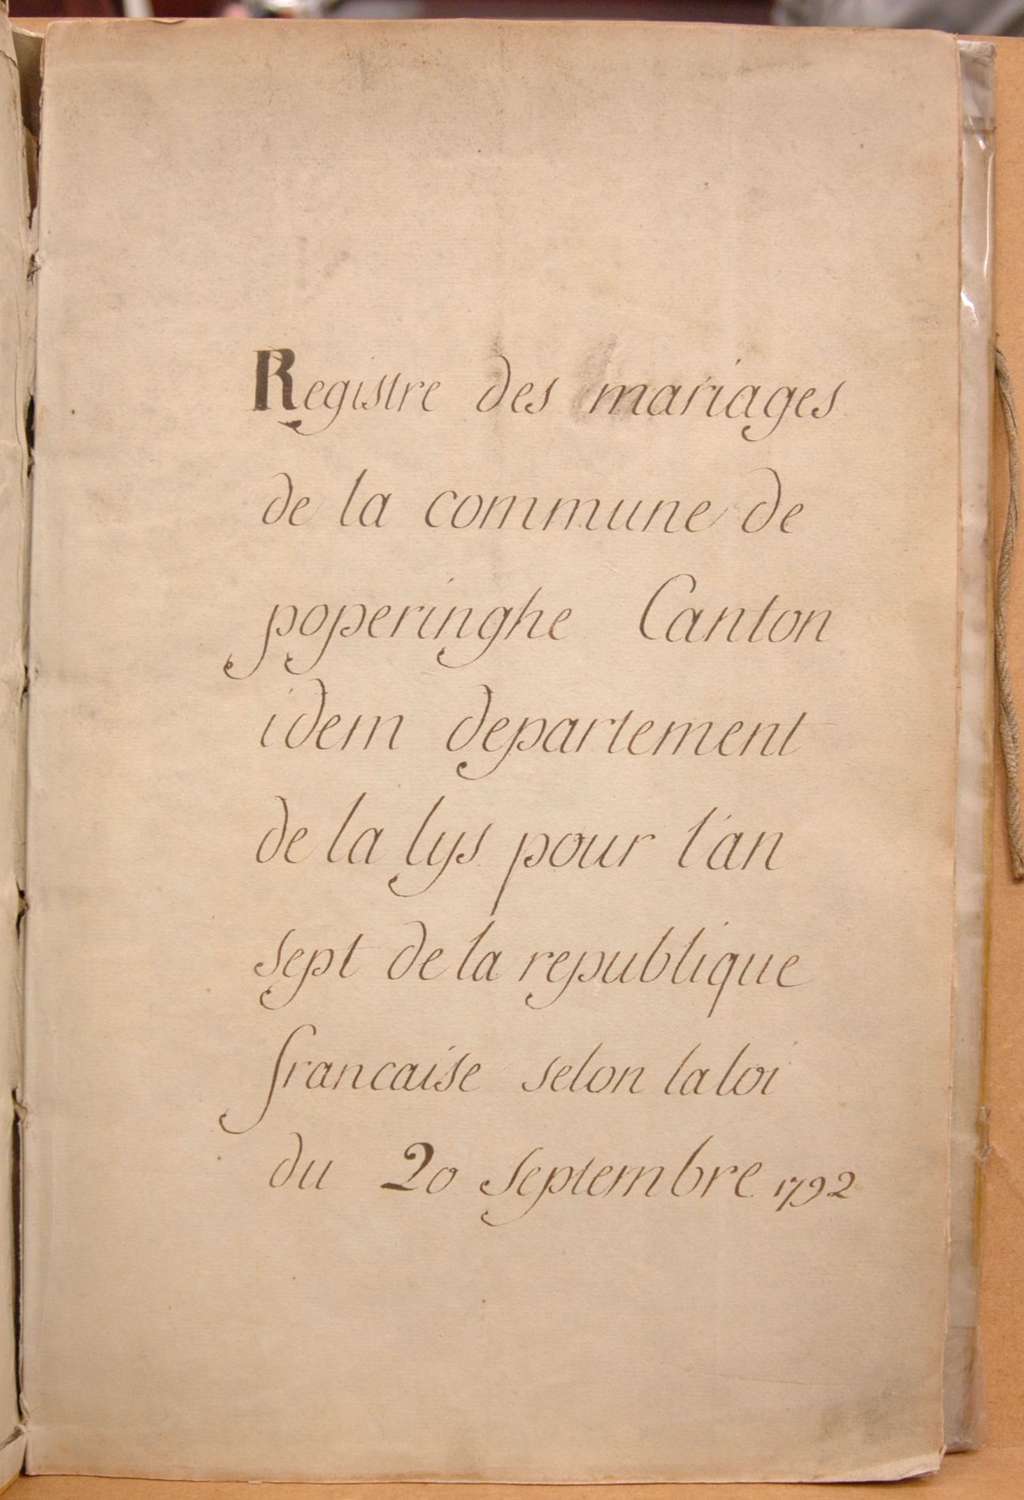 Registre des mariages
de la commune de
poperinghe Canton
idem departement
de la lys pour l'an
sept de la republique
francaise selon la loi
du 20 Septembre 1792